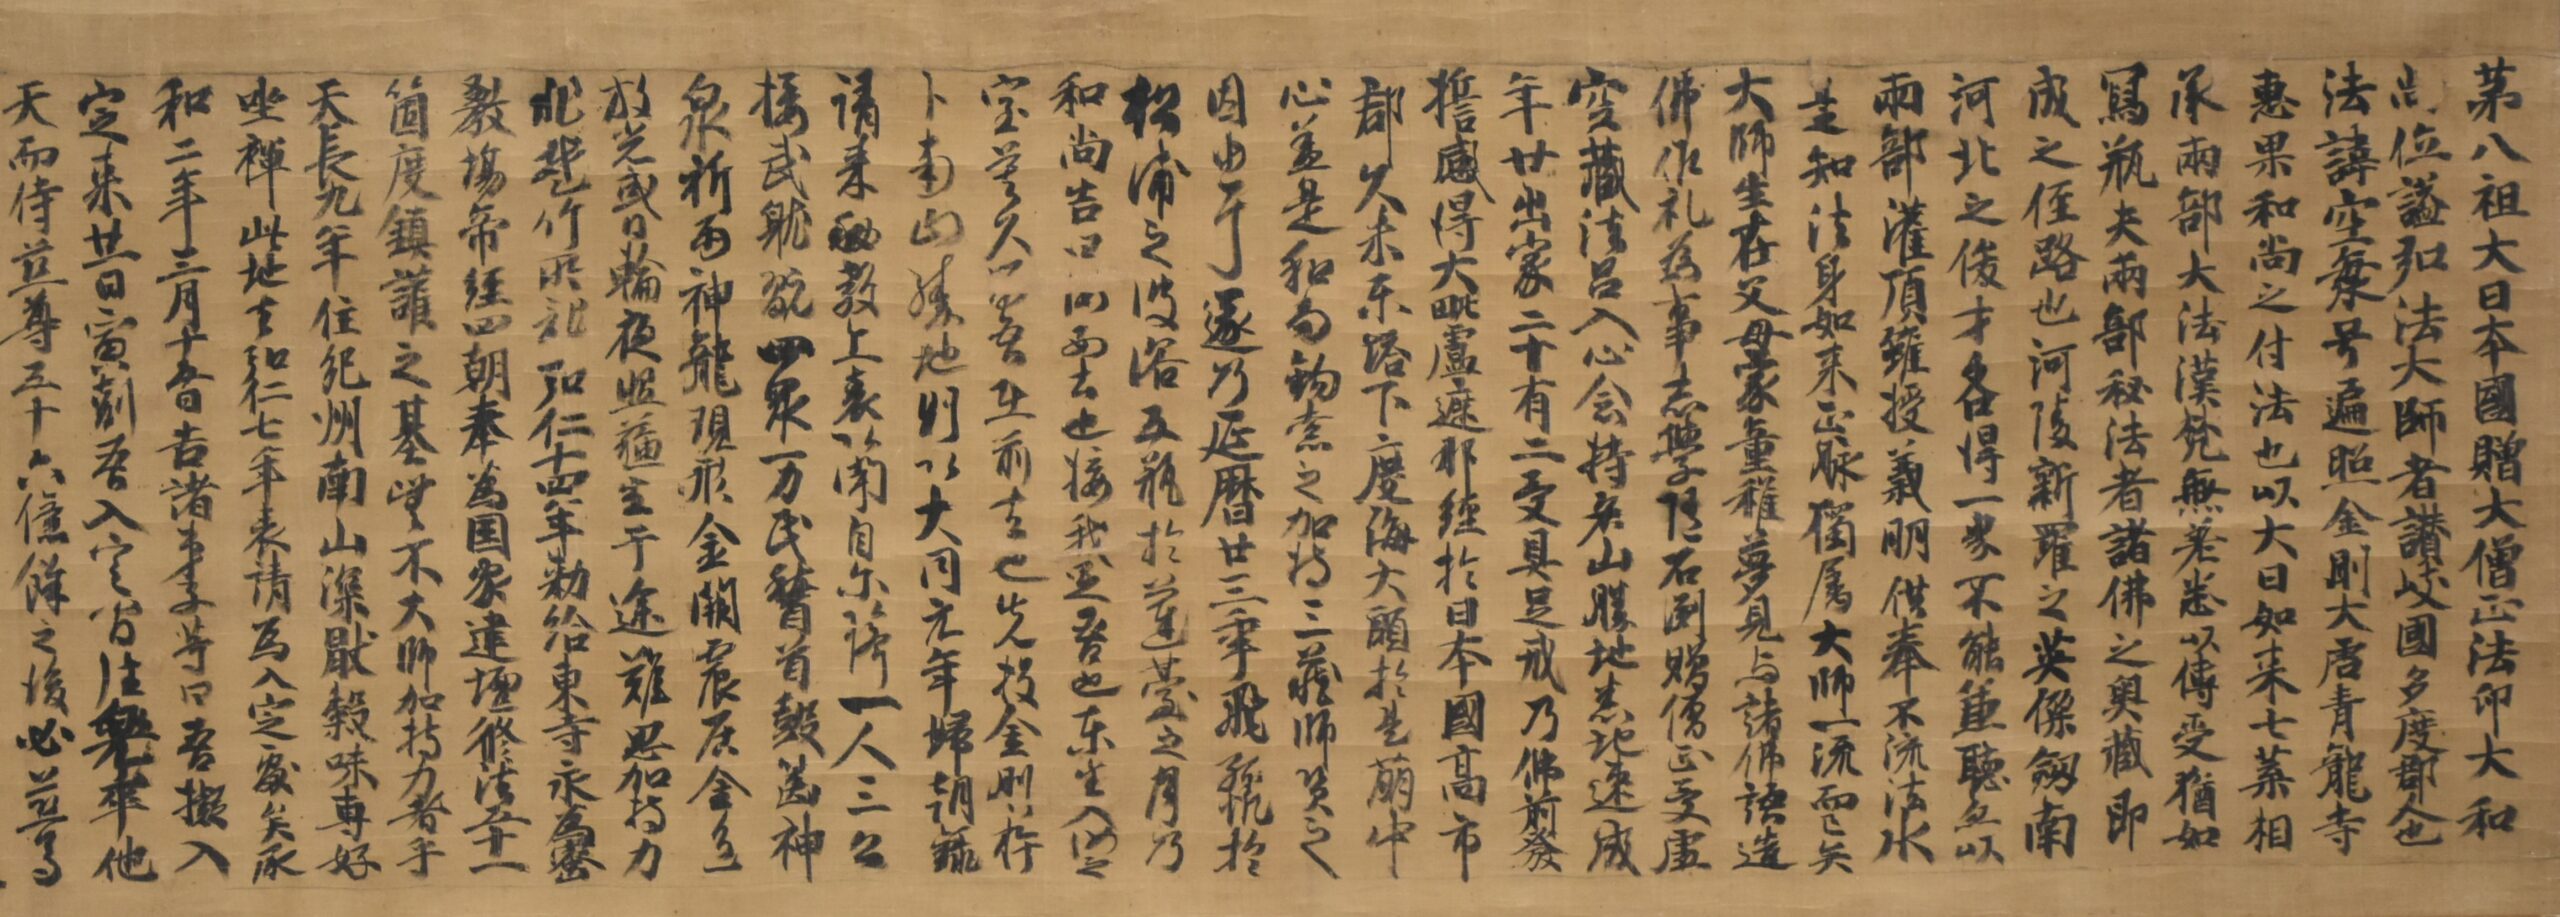 第八祖大日本國贈大僧正法印大和
尚位諡弘法大師者讃岐國多度郡人也
法諱空海号遍照金剛大唐青龍寺
惠果和尚之付法也以大日如来七葉相
承兩部大法漢梵無差悉以傳受猶如
寫瓶夫兩部秘法者諸佛之奥藏即
成之径路也河陵新羅之英傑劔南
河北之俊才各得一家不能兼聽無以
兩部灌頂雖授義明供奉不流法水
是知法身如来正脉獨属大師一流而已矣
大師生在父母家童稚夢見与諸佛語造
佛作礼為事志學 石淵贈僧正受虚
空藏法呂入心念持名山勝地悉地速成
年廿出家二十有二受具足戒乃佛前發
誓感得大毗盧遮那經於日本國高市
郡久米東塔下 度海大願於是萌中
心蓋是和尚鈎索之加持三藏師資之
因由乎遂乃延暦廿三年飛 於
松浦之波溶五瓶於蓮臺之月乃
和尚告曰 去也接我足吾也東生入
室 久 吾 前去也先投金剛杵
卜南山勝地則以大同元年歸朝錄
請来秘教上表以聞自尓 一人三公
接武 四衆一万民稽首鼓 神
泉祈雨神龍現形金闕震居金色
放光或日輪夜照 主于途難思加持力
 弘仁十四年勅給東寺永為密
教場帝經四朝奉為国家建壇修法五十一
箇度鎮護之基豈不大師加持力者乎
天長九年住紀州南山深厭穀味専好
坐禅此地去弘仁七年表請為入定處矣承
和二年三月十五日告諸弟子等曰吾擬入
定来廿一日寅剋吾入定 往兜率他
天而侍慈尊五十六億餘之後必慈尊